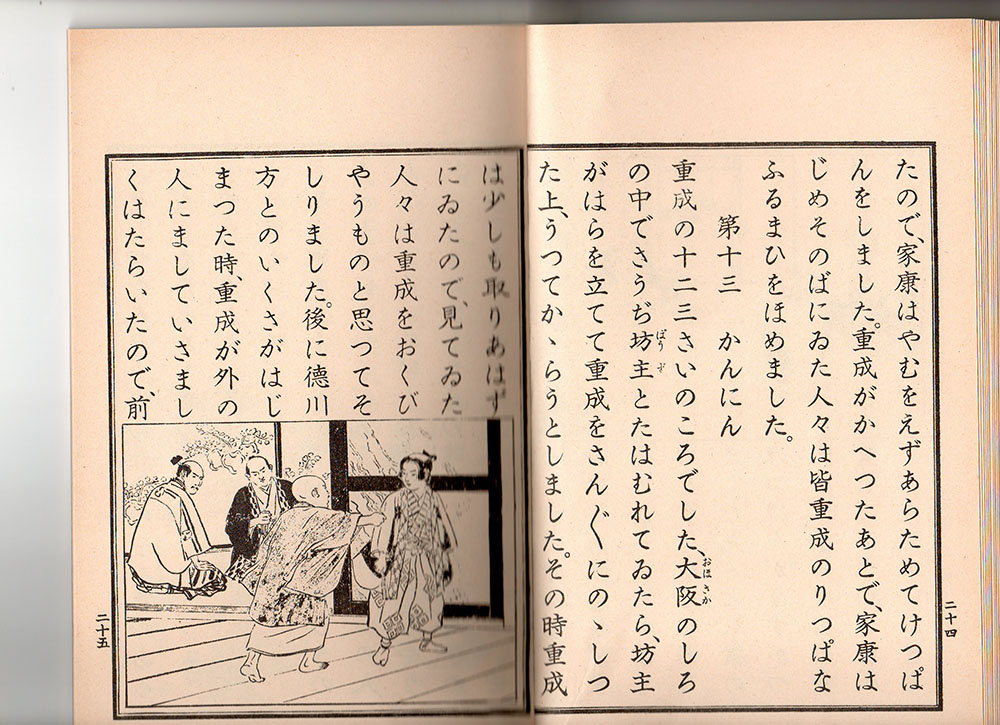 たので、家康はやむをえずあらためてけつぱ
んをしました。重成がかへつたあとで、家康は
じめそのばにゐた人々は皆重成のりつぱな
ふるまひをほめました。
第十三 かんにん
重成の十二三さいのころでした、大阪のしろ
おほさか
の中でさうぢ坊主とたはむれてゐたら、坊主
ばうず
がはらを立てて重成をさん〴〵にのゝしつ
た上、うつてかゝらうとしました。その時重成
二十四
は少しも取りあはず
にゐたので、見てゐた
人々は重成をおくび
やうものと思つてそ
しりました。後に德川
方とのいくさがはじ
まつた時、重成が外の
人にましていさまし
くはたらいたので、前
二十五